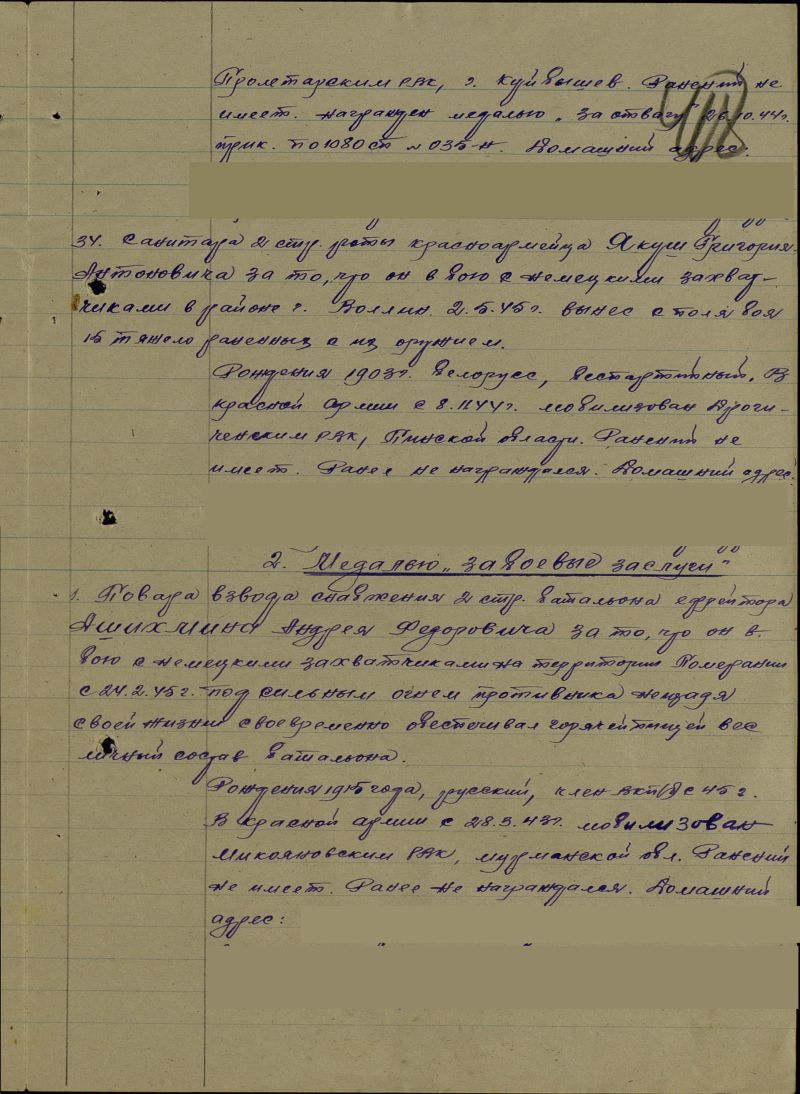 Пролетарским РВК, г. Куйбышев. Ранений не
имеет. Награжден медалью „За отвагу" 26.10.44г.
прик. по 1080 сп №035-н. Домашний адрес:
34. Санитара 2 стр. роты красноармейца Якуш Григория
Антоновича за то, что он в бою с немецкими захват-
чиками в районе г. Воллин 2.5.45г. вынес с поля боя
15 тяжело раненных с их оружием.
Рождения 1903г. белорусс, беспартийный. В
красной армии с 8. 44г. мобилизован Дроги-
ченским РВК, Пинской области. Ранений не
имеет. Ранее не награждался. Домашний адрес:
2. Медалью „За боевые заслуги"
1. Повара взвода снабжения 2 стр. батальона ефрейтора
Ашихмина Андрея Федоровича за то, что он в
бою с немецкими захватчиками на территории Померании
с 24.2.45г. под сильным огнем противника нещадя
своей жизни своевременно обеспечивал горячей пищей вес
личный состав батальона.
Рождения 1915 года, русский, член ВКП(б) с 45г.
В красной армии с 28.3.43г. мобилизован
Микояновским РВК, мурманской обл. Ранений
не имеет. Ранее не награждался. Домашний
адрес: